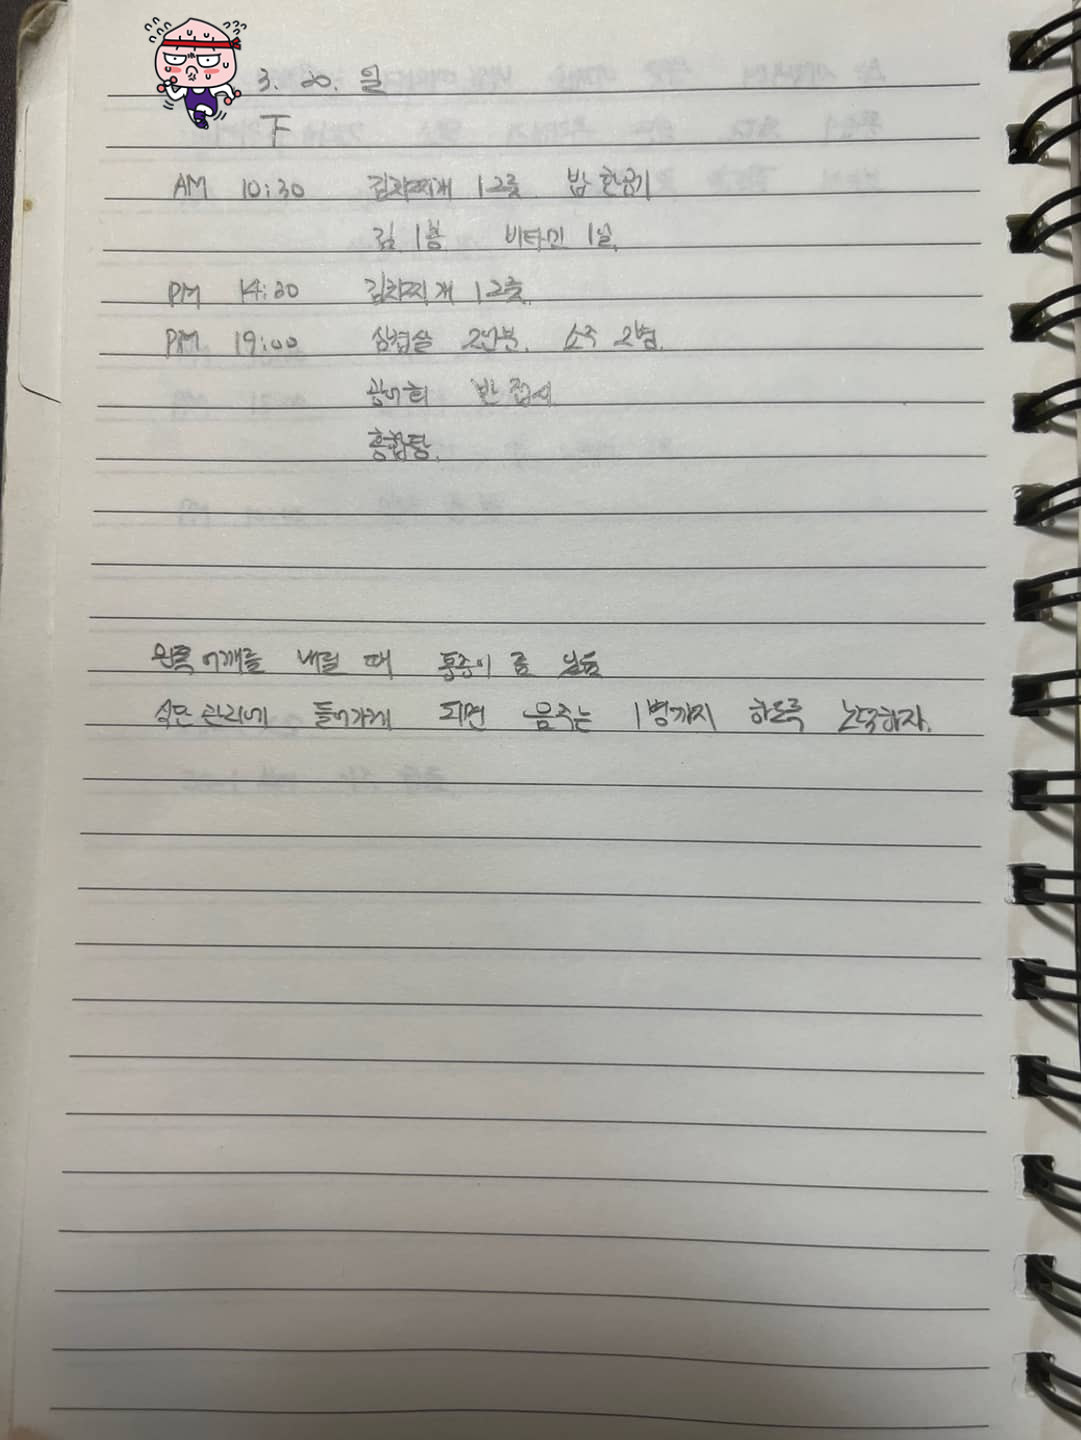 3. 20. 일
下
AM 10:30 김치찌개 1그릇 밥 한공기
김 1봉 비타민 1알.
PM 14:20 김치찌개 1그릇.
PM 19:00 삼겹살 2인분. 소주 2병.
광어회 반 접시
홍합탕.
왼쪽 어깨를 내릴 때 통증이 좀 있음
식단 관리에 들어가게 되면 음주는 1병까지 하도록 노력하자.